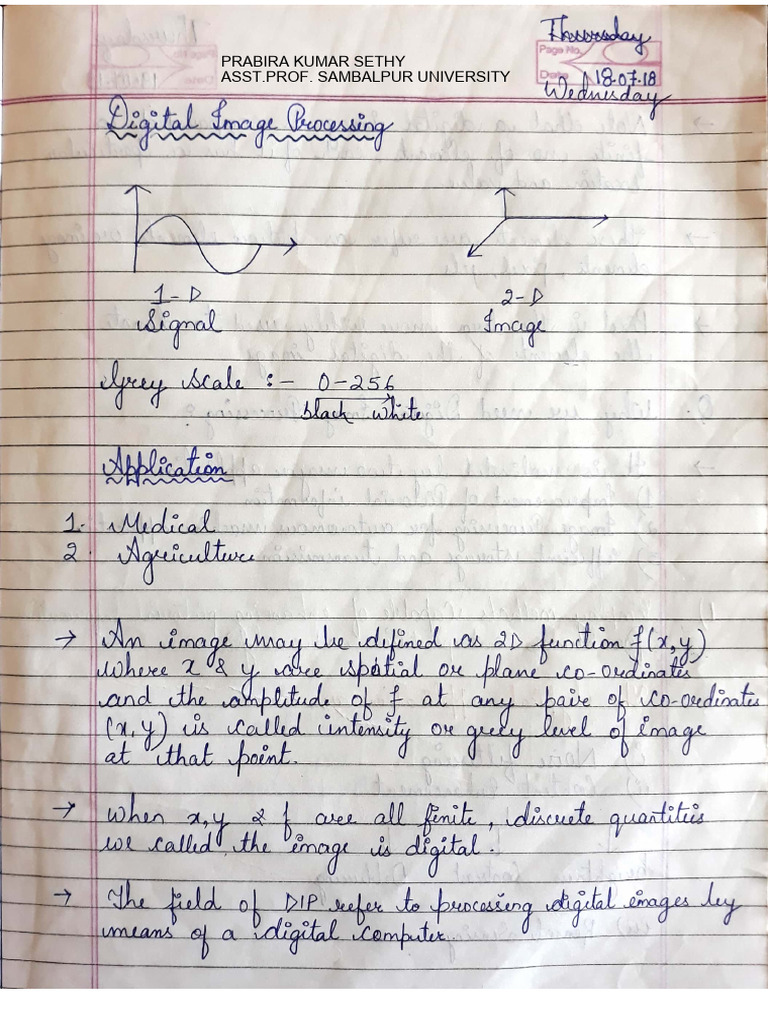 Thursday
PRABIRA KUMAR SETHY
Page No.
ASST.PROF. SAMBALPUR UNIVERSITY
Date 18.07.18
Wednesday
Digital Image Processing
1-D
2-D
Signal
Image
Grey Scale :- 0-256
black white
Application
1. Medical
2. Agriculture
→ An image may be defined as 2D function f(x,y)
where x & y are spatial or plane co-ordinates
and the amplitude of f at any pair of co-ordinates
(x,y) is called intensity or grey level of image
at that point.
→ When x,y & f are all finite, discrete quantities
we called the image is digital.
→ The field of DIP refer to processing digital images by
means of a digital computer.